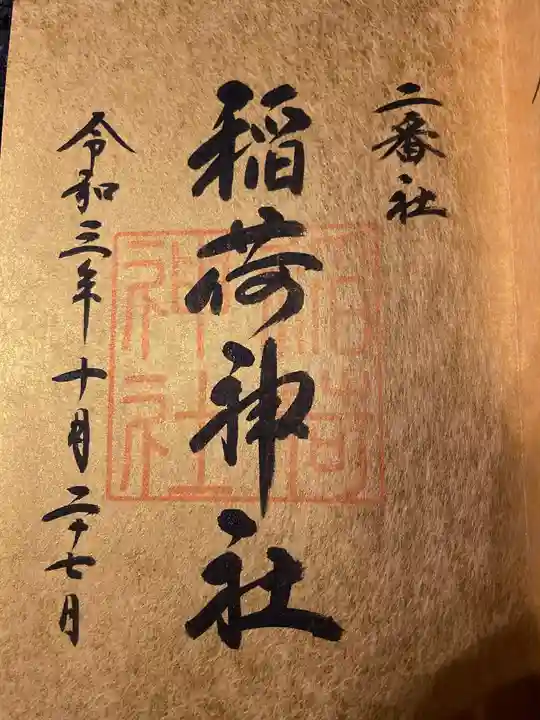 二番社
稲荷神社
令和三年十月二十七日
稲荷
神社